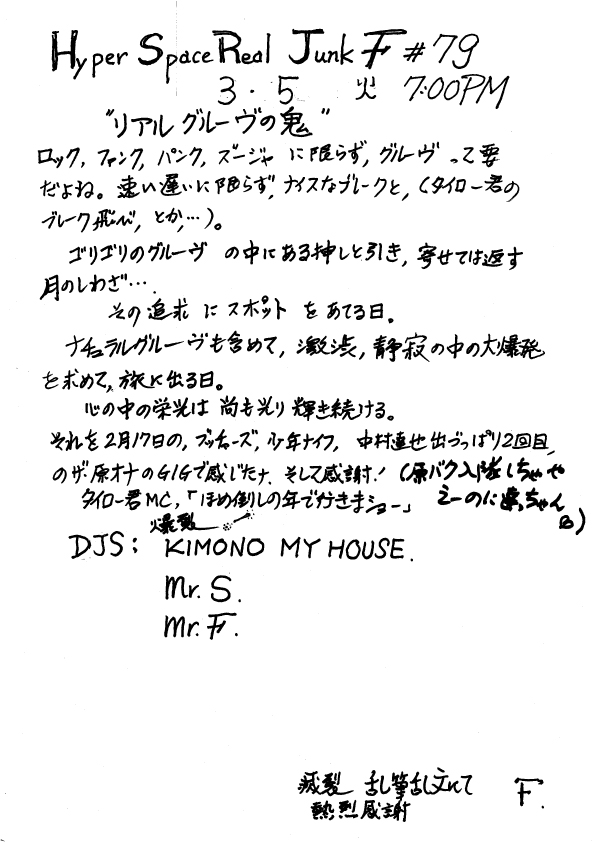 Hyper Space Real Junk F #79
3・5 火 7:00PM
"リアルグルーヴの鬼"
ロック, ファンク, パンク, ズージャ に限らず, グルーヴ って要
だよね。速い遅いに限らず, ナイスなブレークと, (タイロー君の
ブレーク飛び, とか,…)。
ゴリゴリのグルーヴ の中にある押しと引き, 寄せては返す
月のしわざ….
その追求 に スポット を あてる日。
ナチュラルグルーヴも含めて, 激渋, 静寂の中の大爆発
を求めて, 旅に出る日。
心の中の栄光は 尚も光り輝き続ける。
それを2月17日の, ブッチャーズ, 少年ナイフ, 中村達也出づっぱり2回目,
のザ・原オナのGIGで感じたナ. そして感謝! (原バク入隊しちゃや
タイロー君MC,「ほめ倒しの年で行きまショー」 ミーのに ちゃん
爆裂
DJS; KIMONO MY HOUSE.
Mr. S.
Mr. F.
滅裂 乱筆乱文にて F.
熱烈感謝